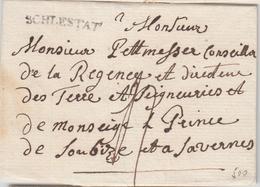 SCHLESTAT
a Monsieur
Monsieur Pettmesser Conseiller
de la Regence et directeur
des Terre et Seigneuries et
de monseig a Prince
de Soubize et a Savernes
500